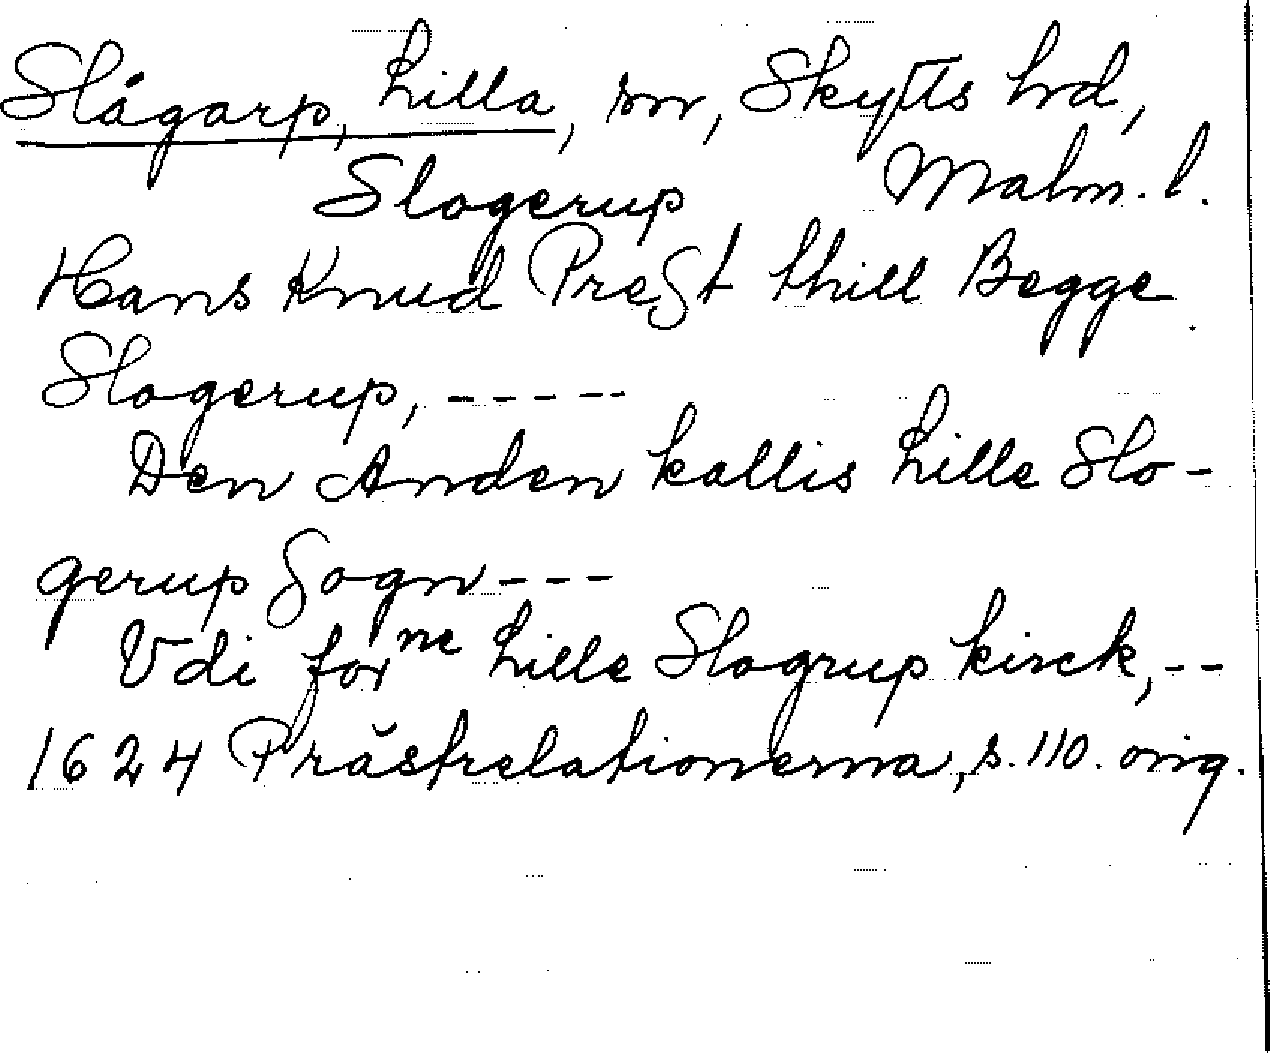 Slågarp, Lilla, sn, Skytts hd,
Slogerup Malm. l.
Hans Knud Prest thill Begge
Slogerup, -----
Den Anden kallis Lille Slo-
gerup Sogn ---
Vdi for^ne Lille Slogrup kirck, --
1624 Prästrelationerna, s. 110. orig.